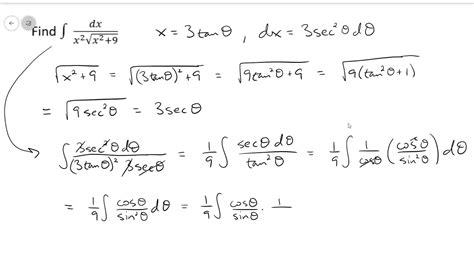 Find ∫ dx / (x²√(x²+9))    x = 3tanθ , dx = 3sec²θ dθ
√(x²+9) = √((3tanθ)²+9) = √(9tan²θ+9) = √(9(tan²θ+1))
= √(9sec²θ) = 3secθ
∫ 3sec²θ dθ / ((3tanθ)² 3secθ) = 1/9 ∫ secθ dθ / tan²θ = 1/9 ∫ 1/cosθ (cos²θ / sin²θ) dθ
= 1/9 ∫ cosθ / sin²θ dθ = 1/9 ∫ cosθ / sinθ · 1/